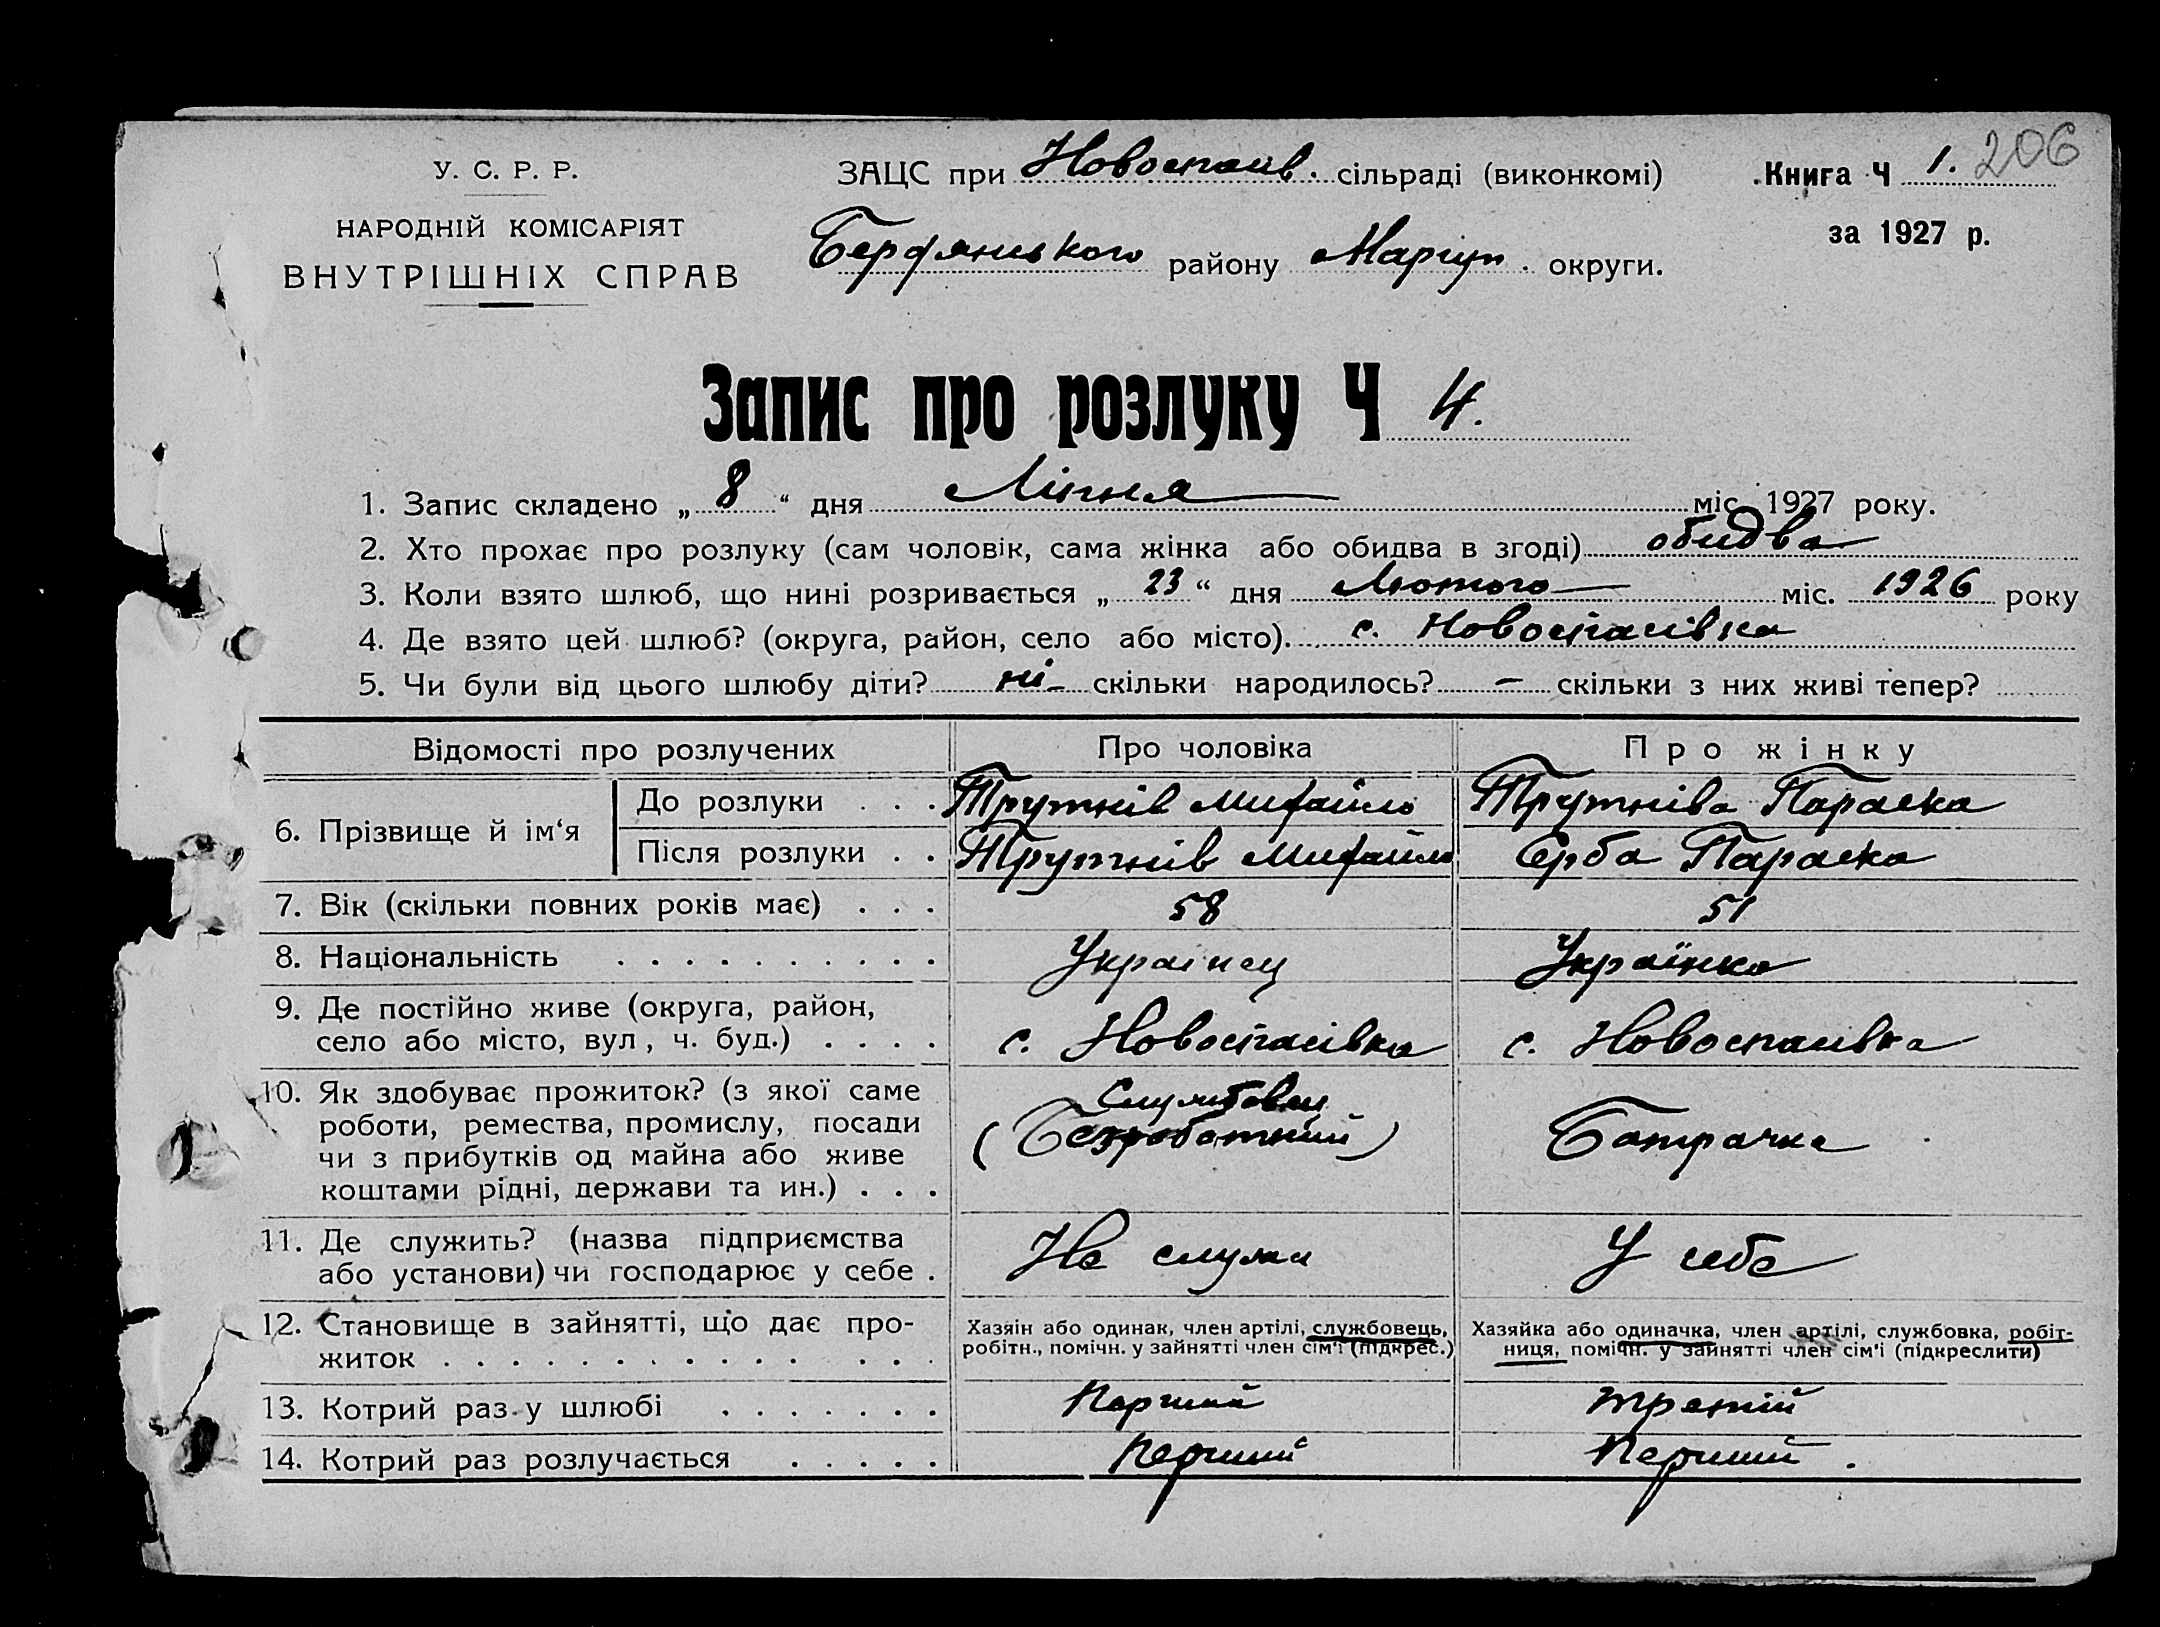 У. С. Р. Р.
НАРОДНІЙ КОМІСАРІЯТ
ВНУТРІШНІХ СПРАВ
ЗАЦС при Новоспасів. сільраді (виконкомі)
Бердянського району Маріуп. округи.
Книга Ч 1. 206
за 1927 р.
Запис про розлуку Ч 4.
1. Запис складено „ 8 “ дня Липня міс. 1927 року.
2. Хто прохає про розлуку (сам чоловік, сама жінка або обидва в згоді) обидва
3. Коли взято шлюб, що нині розривається „ 23 “ дня Лютого міс. 1926 року
4. Де взято цей шлюб? (округа, район, село або місто). с. Новоспасівка
5. Чи були від цього шлюбу діти? ні скільки народилось? – скільки з них живі тепер?
Відомості про розлучених Про чоловіка Про жінку
6. Прізвище й ім‘я
До розлуки . . . Трутнів Михайло Трутніва Параска
Після розлуки . . Трутнів Михайло Єрба Параска
7. Вік (скільки повних років має) . . . 58 51
8. Національність . . . . . . . . . . Українец Українка
9. Де постійно живе (округа, район,
село або місто, вул, ч. буд.) . . . . с. Новоспасівка с. Новоспасівка
10. Як здобуває прожиток? (з якої саме
роботи, ремества, промислу, посади
чи з прибутків од майна або живе
коштами рідні, держави та ин.) . . .
Службовец
(Безроботний) Батрачка
11. Де служить? (назва підприємства
або установи) чи господарює у себе .
Не служи У себе
12. Становище в зайнятті, що дає про-
житок . . . . . . . . . . . . . .
Хазяін або одинак, член артілі, службовець,
робітн., помічн. у зайнятті член сім'ї (підкрес.)
Хазяйка або одиначка, член артілі, службовка, робіт-
ниця, помічн. у зайнятті член сім'ї (підкреслити)
13. Котрий раз у шлюбі . . . . . . . Перший третій
14. Котрий раз розлучається . . . . . Перший Перший.